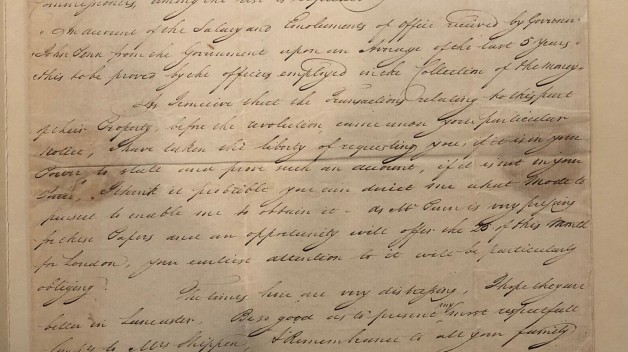 Commissioners, among the rest is
An account of the Salary and Emoluments of office received by Governor
John Penn from the Government upon an Average of the last 5 Years.
this to be proved by the officers employed in the Collection of the Money.
As I conceive that the Transactions relating to this part
of their Property before the revolution came under your particular
Notice, I have taken the liberty of requesting you, if it is in your
Power to state and prove such an account, if it is not in your
I think it probable you can direct me what mode to
pursue to enable me to obtain it - as Mr Penn is very pressing
for these Papers and an opportunity will offer the 25 of this Month
for London, your earliest attention to it will be particularly
obliging.
The times here are very distressing, I hope they are
better in Lancaster. Be so good as to present my most respectfull
to Mrs Shippen, & Remembrance to all your family